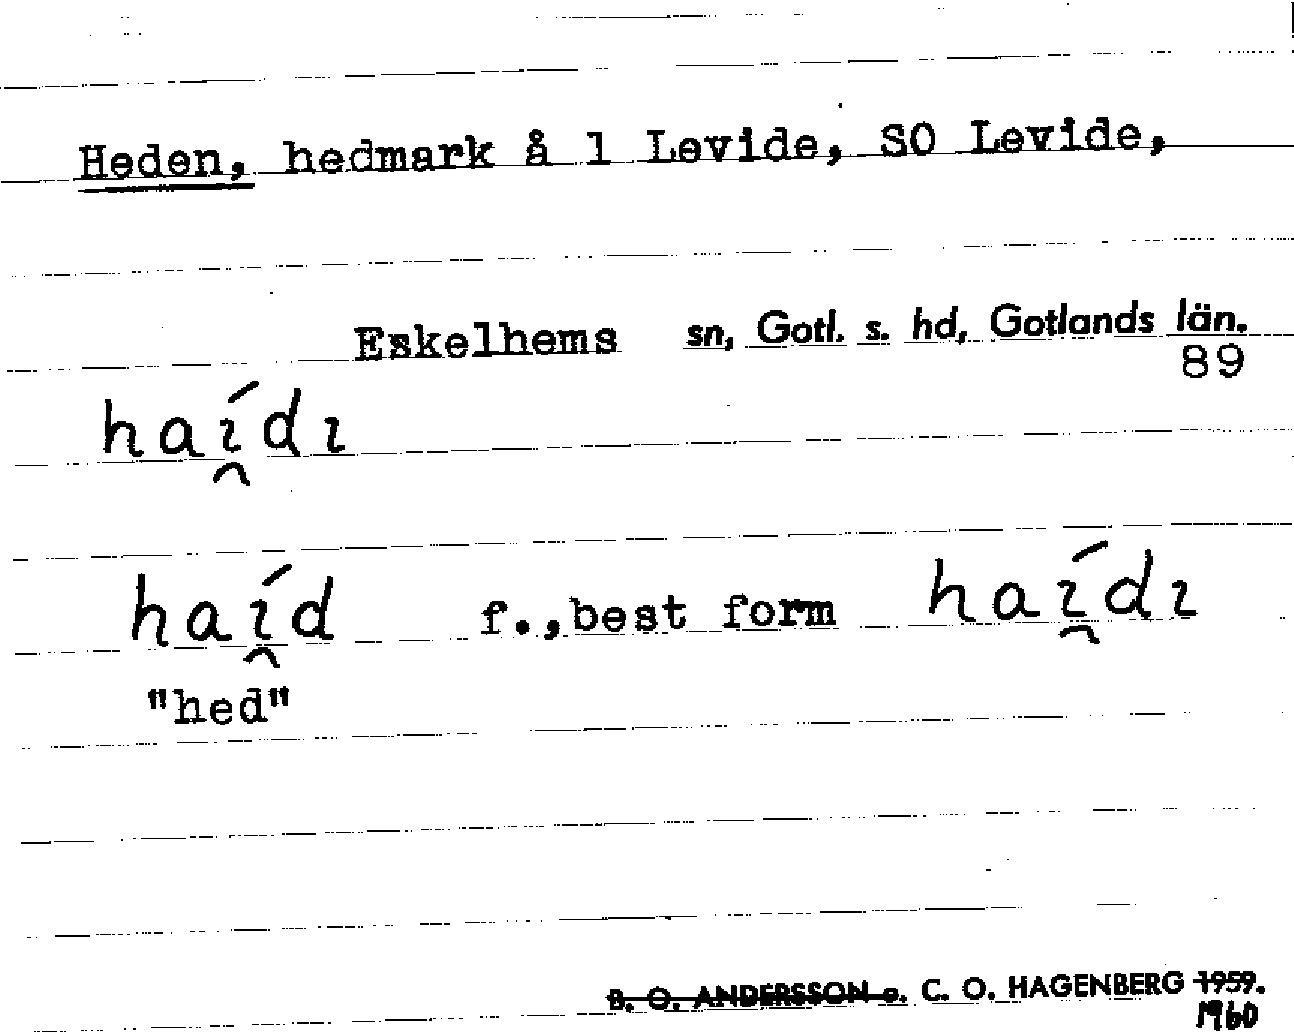 Heden, hedmark å 1 Levide, SO Levide,
Eskelhems sn, Gotl. s. hd, Gotlands län.
89
haı̯́dı
haı̯́d f.,best form haı̯́dı
"hed"
B. O. ANDERSSON o. C. O. HAGENBERG 1959.
1960